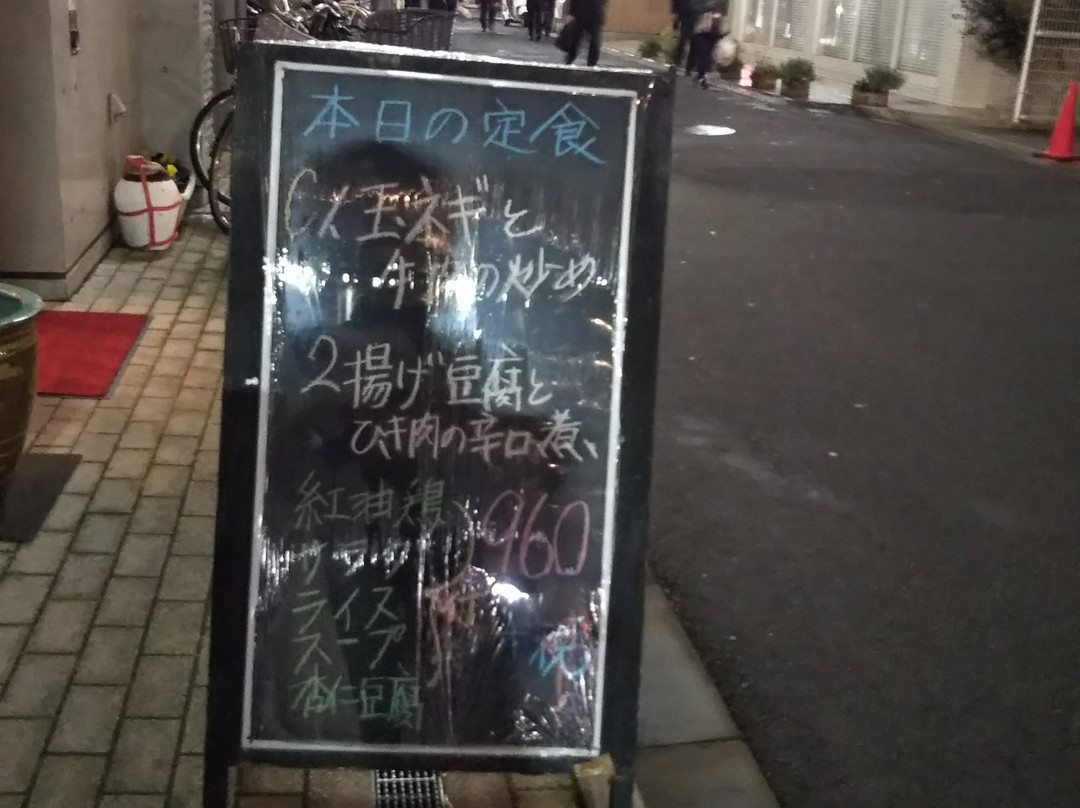 本日の定食
玉ネギと
牛肉の炒め
2揚げ豆腐と
ひき肉の辛口煮
紅油鶏
サラダ
960
ライス
付
スープ
杏仁豆腐